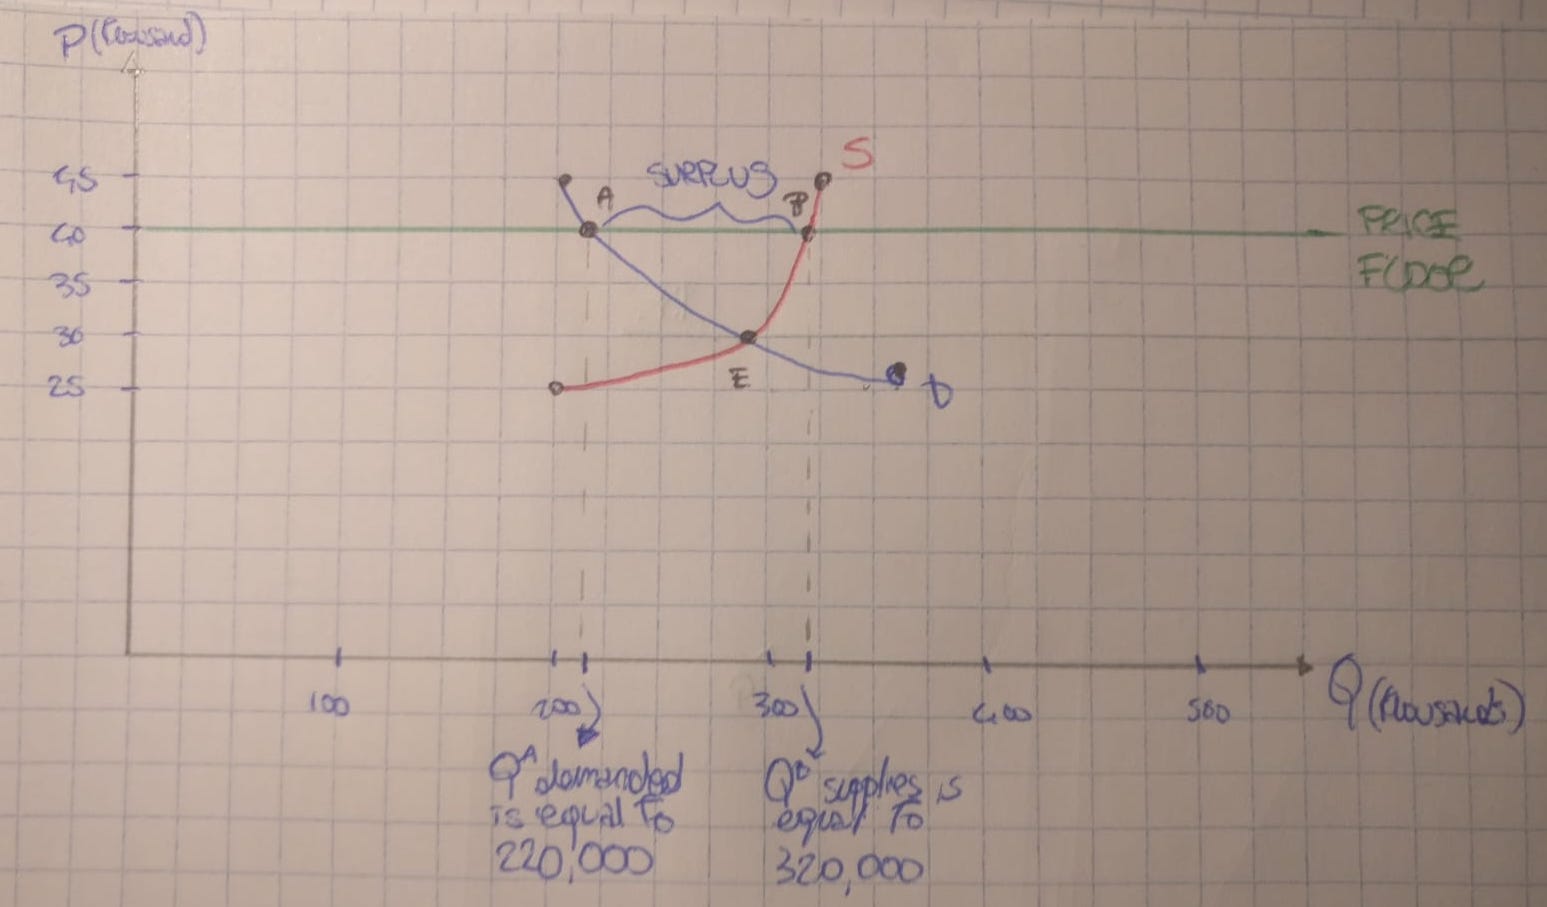 P(Thousand)
45
40
35
30
25
SURPLUS
A
B
S
E
D
PRICE
FLOOR
100
200
300
400
500
Q (thousands)
Q^A demanded
is equal To
220,000
Q^B supplies is
equal To
320,000